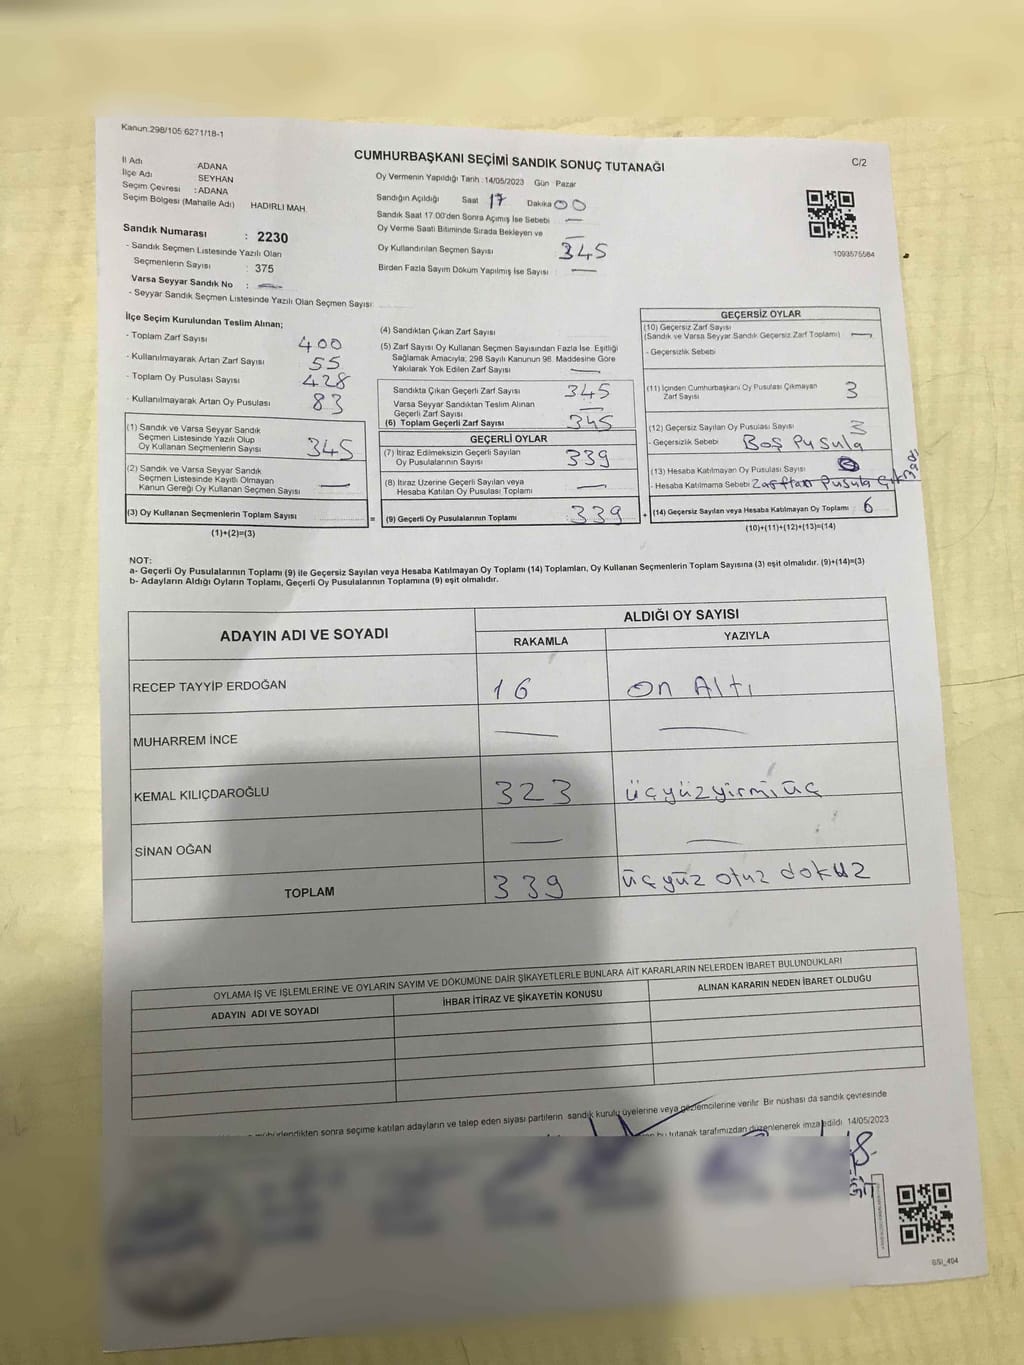 Kanun:298/105 6271/18-1
CUMHURBAŞKANI SEÇİMİ SANDIK SONUÇ TUTANAĞI
C/2
İl Adı : ADANA
İlçe Adı : SEYHAN
Seçim Çevresi : ADANA
Seçim Bölgesi (Mahalle Adı) HADIRLI MAH.
Oy Vermenin Yapıldığı Tarih :14/05/2023 Gün Pazar
Sandığın Açıldığı Saat 17 Dakika 00
Sandık Saat 17.00'den Sonra Açımış İse Sebebi —
Oy Verme Saati Bitiminde Sırada Bekleyen ve —
Oy Kullandırılan Seçmen Sayısı 345
Birden Fazla Sayım Döküm Yapılmış İse Sayısı : —
1093575584
Sandık Numarası : 2230
- Sandık Seçmen Listesinde Yazılı Olan
Seçmenlerin Sayısı : 375
Varsa Seyyar Sandık No : —
- Seyyar Sandık Seçmen Listesinde Yazılı Olan Seçmen Sayısı:
İlçe Seçim Kurulundan Teslim Alınan;
- Toplam Zarf Sayısı 400
- Kullanılmayarak Artan Zarf Sayısı 55
- Toplam Oy Pusulası Sayısı 428
- Kullanılmayarak Artan Oy Pusulası 83
(1) Sandık ve Varsa Seyyar Sandık
Seçmen Listesinde Yazılı Olup
Oy Kullanan Seçmenlerin Sayısı 345
(2) Sandık ve Varsa Seyyar Sandık
Seçmen Listesinde Kayıtlı Olmayan
Kanun Gereği Oy Kullanan Seçmen Sayısı —
(3) Oy Kullanan Seçmenlerin Toplam Sayısı
(1)+(2)=(3)
(4) Sandıktan Çıkan Zarf Sayısı
(5) Zarf Sayısı Oy Kullanan Seçmen Sayısından Fazla İse. Eşitliği
Sağlamak Amacıyla; 298 Sayılı Kanunun 98. Maddesine Göre
Yakılarak Yok Edilen Zarf Sayısı —
Sandıkta Çıkan Geçerli Zarf Sayısı 345
Varsa Seyyar Sandıktan Teslim Alınan
Geçerli Zarf Sayısı —
(6) Toplam Geçerli Zarf Sayısı 345
GEÇERLİ OYLAR
(7) İtiraz Edilmeksizin Geçerli Sayılan
Oy Pusulalarının Sayısı 339
(8) İtiraz Üzerine Geçerli Sayılan veya
Hesaba Katılan Oy Pusulası Toplamı —
= (9) Geçerli Oy Pusulalarının Toplamı 339 +
GEÇERSİZ OYLAR
(10) Geçersiz Zarf Sayısı
(Sandık ve Varsa Seyyar Sandık Geçersiz Zarf Toplamı) —
- Geçersizlik Sebebi
(11) İçinden Cumhurbaşkanı Oy Pusulası Çıkmayan
Zarf Sayısı 3
(12) Geçersiz Sayılan Oy Pusulası Sayısı 3
- Geçersizlik Sebebi Boş Pusula
(13) Hesaba Katılmayan Oy Pusulası Sayısı
- Hesaba Katılmama Sebebi Zarftan Pusula Çıkmadı
(14) Geçersiz Sayılan veya Hesaba Katılmayan Oy Toplamı 6
(10)+(11)+(12)+(13)=(14)
NOT:
a- Geçerli Oy Pusulalarının Toplamı (9) ile Geçersiz Sayılan veya Hesaba Katılmayan Oy Toplamı (14) Toplamları, Oy Kullanan Seçmenlerin Toplam Sayısına (3) eşit olmalıdır. (9)+(14)=(3)
b- Adayların Aldığı Oyların Toplamı, Geçerli Oy Pusulalarının Toplamına (9) eşit olmalıdır.
ADAYIN ADI VE SOYADI
ALDIĞI OY SAYISI
RAKAMLA YAZIYLA
RECEP TAYYİP ERDOĞAN 16 on Altı
MUHARREM İNCE — —
KEMAL KILIÇDAROĞLU 323 üçyüzyirmiüç
SİNAN OĞAN — —
TOPLAM 339 üçyüz otuz dokuz
OYLAMA İŞ VE İŞLEMLERİNE VE OYLARIN SAYIM VE DÖKÜMÜNE DAİR ŞİKAYETLERLE BUNLARA AİT KARARLARIN NELERDEN İBARET BULUNDUKLARI
ADAYIN ADI VE SOYADI İHBAR İTİRAZ VE ŞİKAYETİN KONUSU ALINAN KARARIN NEDEN İBARET OLDUĞU
mühürlendikten sonra seçime katılan adayların ve talep eden siyasi partilerin sandık kurulu üyelerine veya gözlemcilerine verilir. Bir nüshası da sandık çevresinde
bu tutanak tarafımızdan düzenlenerek imza edildi. 14/05/2023
SSİ_494